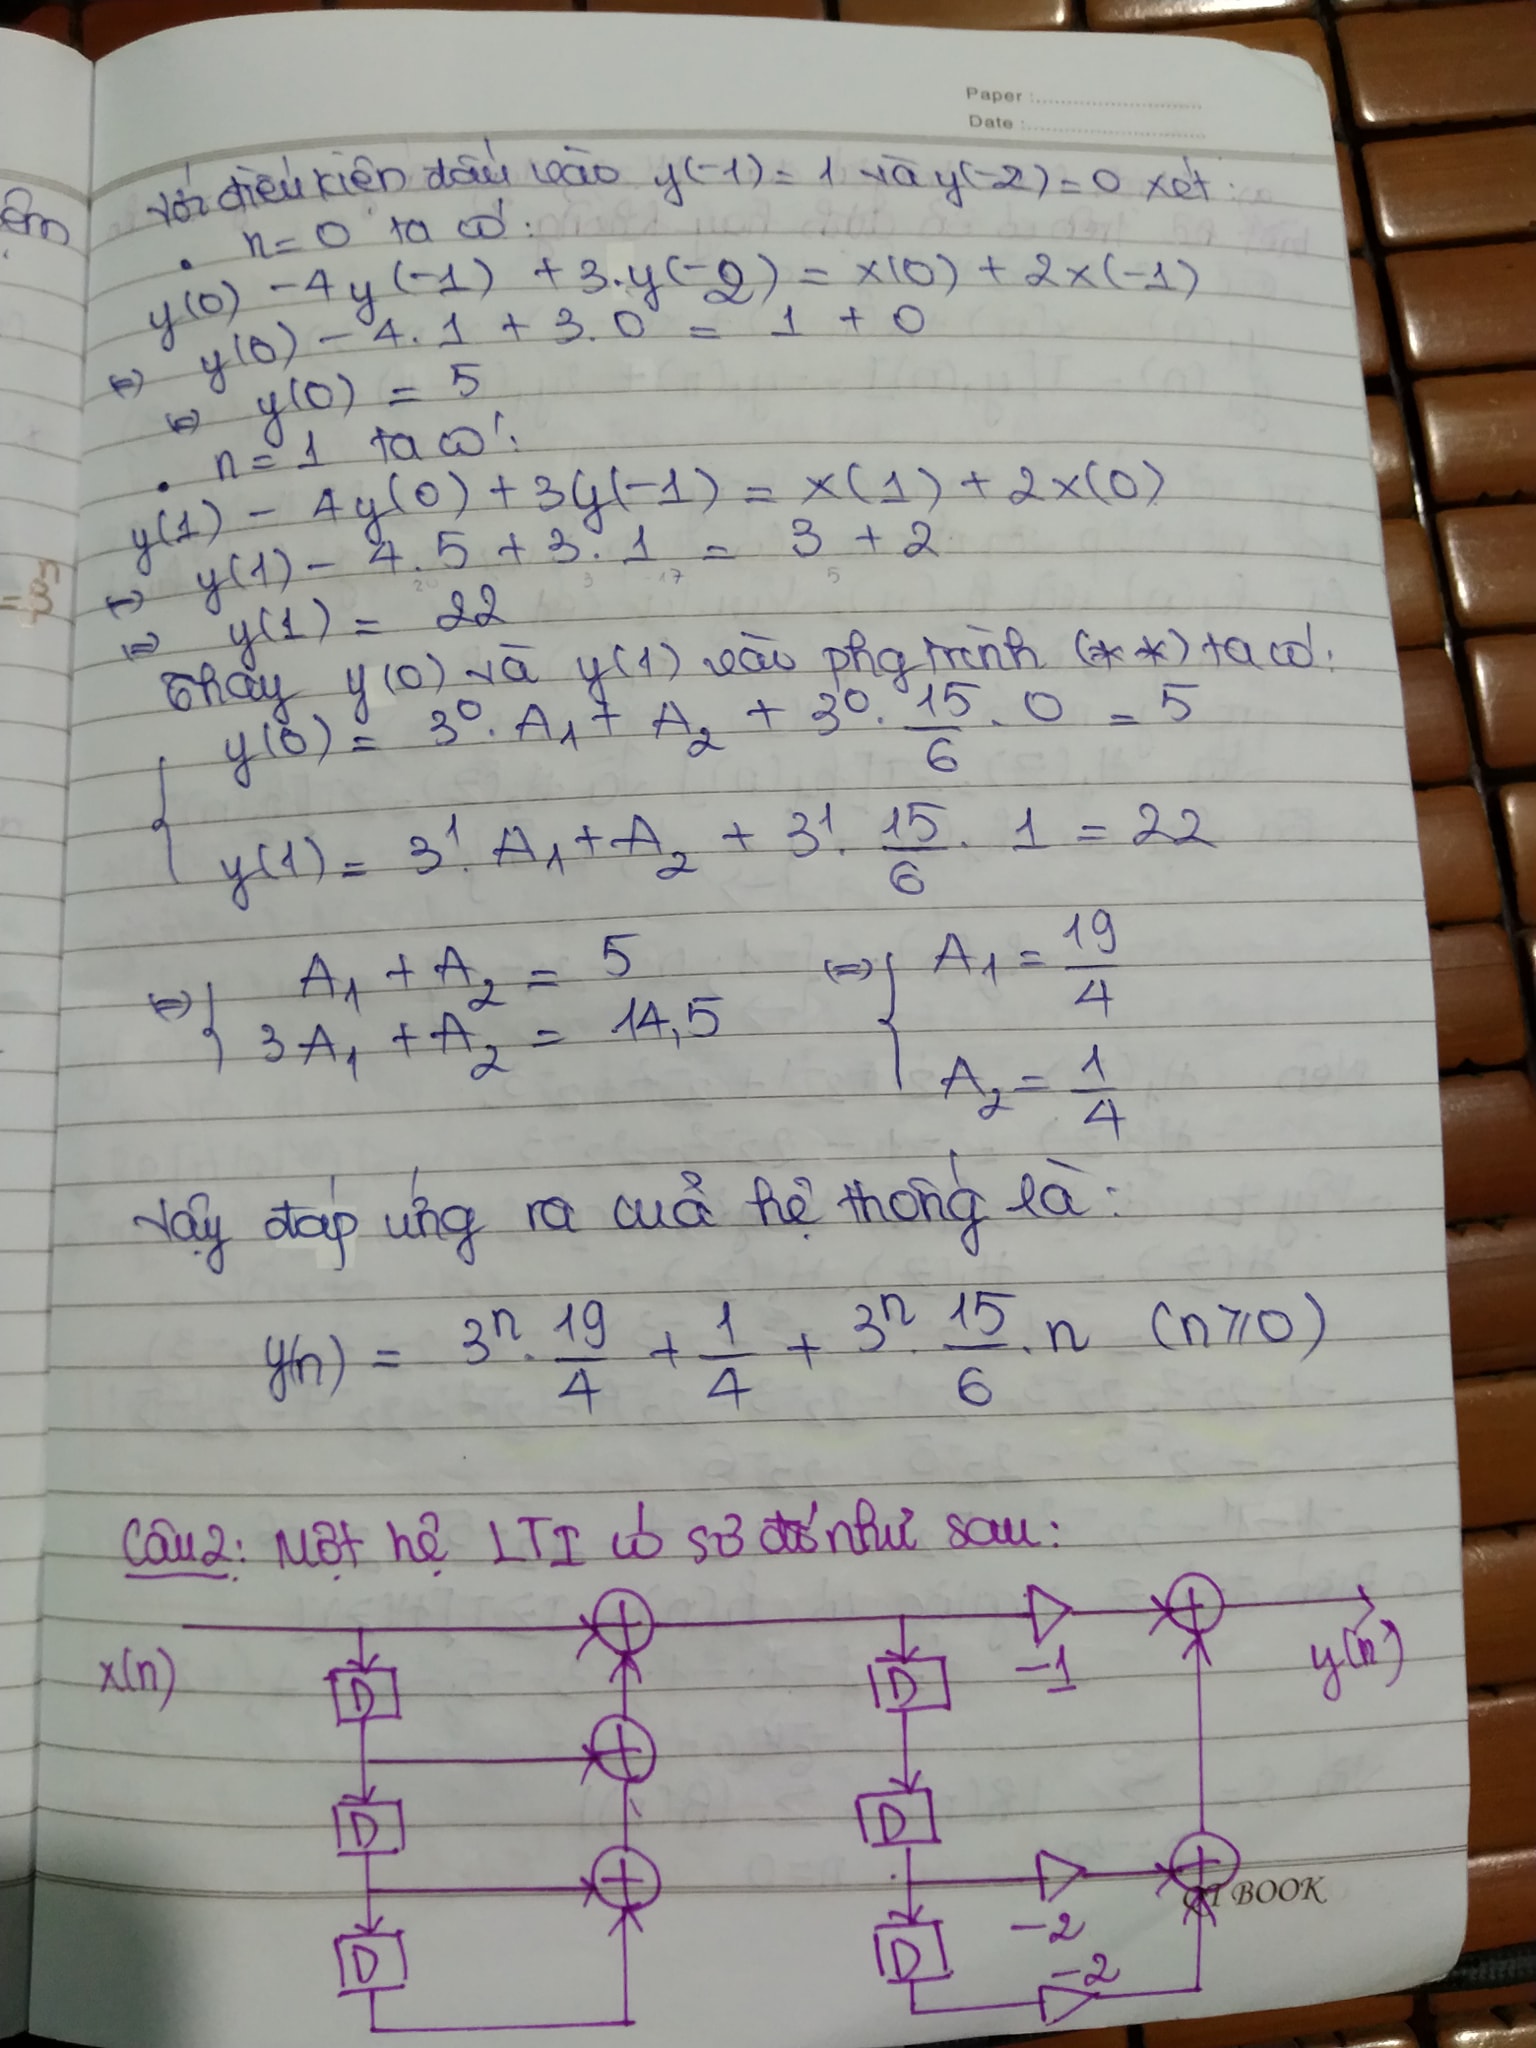 Paper :
Date :
Với điều kiện đầu vào y(-1) = 1 và y(-2) = 0 xét:
• n = 0 ta có:
y(0) - 4y(-1) + 3.y(-2) = x(0) + 2x(-1)
⇔ y(0) - 4.1 + 3.0 = 1 + 0
⇔ y(0) = 5
• n = 1 ta có:
y(1) - 4y(0) + 3y(-1) = x(1) + 2x(0)
⇔ y(1) - 4.5 + 3.1 = 3 + 2
20 3 17 5
⇔ y(1) = 22
Thay y(0) và y(1) vào phg trình (**) ta có:
y(0) = 3⁰.A₁ + A₂ + 3⁰.15/6.0 = 5
y(1) = 3¹.A₁ + A₂ + 3¹.15/6.1 = 22
⇔ { A₁ + A₂ = 5 ⇔ { A₁ = 19/4
3A₁ + A₂ = 14,5 A₂ = 1/4
Vậy đáp ứng ra của hệ thống là:
y(n) = 3ⁿ.19/4 + 1/4 + 3ⁿ.15/6.n (n≥0)
Câu 2: Một hệ LTI có sơ đồ như sau:
x(n)
+
-1
+
y(n)
D
D
+
D
D
+
-2
+
QT BOOK
D
D
-2